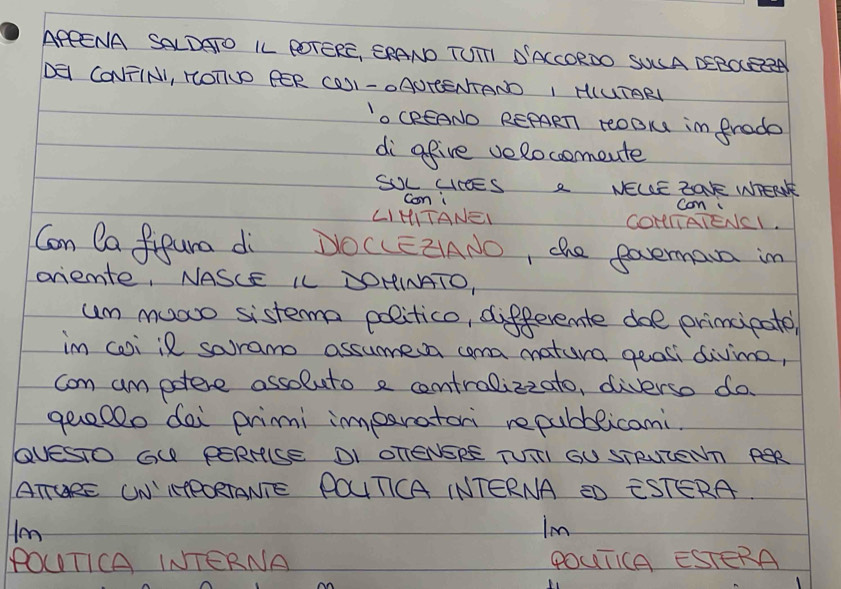 APPENA SALDATO IL POTERE, ERANO TUTTI D'ACCORDO SULLA DEBOLEZZA
DEI CONFINI, MOTIVO PER CUI → AUMENTANO I MILITARI
↳ CREANO REPARTI MOBILI in grado
di agire velocemente
SUL LIMES e NELLE ZONE INTERNE
con: con:
LIMITANEI COMITATENCI.
Con la figura di DIOCLEZIANO, che governava in
oriente, NASCE IL DOMINATO,
un nuovo sistema politico, differente dal principato,
in cui il sovrano assumeva una natura quasi divina,
con un potere assoluto e centralizzato, diverso da
quello dei primi imperatori repubblicani.
QUESTO GLI PERMISE DI OTTENERE TUTTI GLI STRUMENTI PER
ATTUARE UN'IMPORTANTE POLITICA INTERNA ED ESTERA.
In In
POLITICA INTERNA POLITICA ESTERA